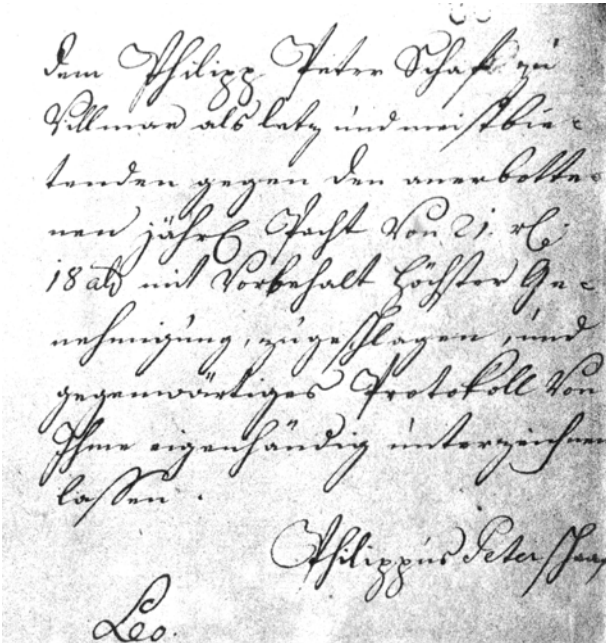 dem Philipp Peter Schaf zu
Villmar als letz und meistbie-
tenden gegen den anerbotte-
nen jährl Pacht von 21. rl:
18 alb mit Vorbehalt höchster Ge-
nehmigung, zugeschlagen, und
gegenwärtiges Protokoll von
Ihme eigenhändig unterzeichnen
lassen.
Philippus Peter Schaaf
Leo.